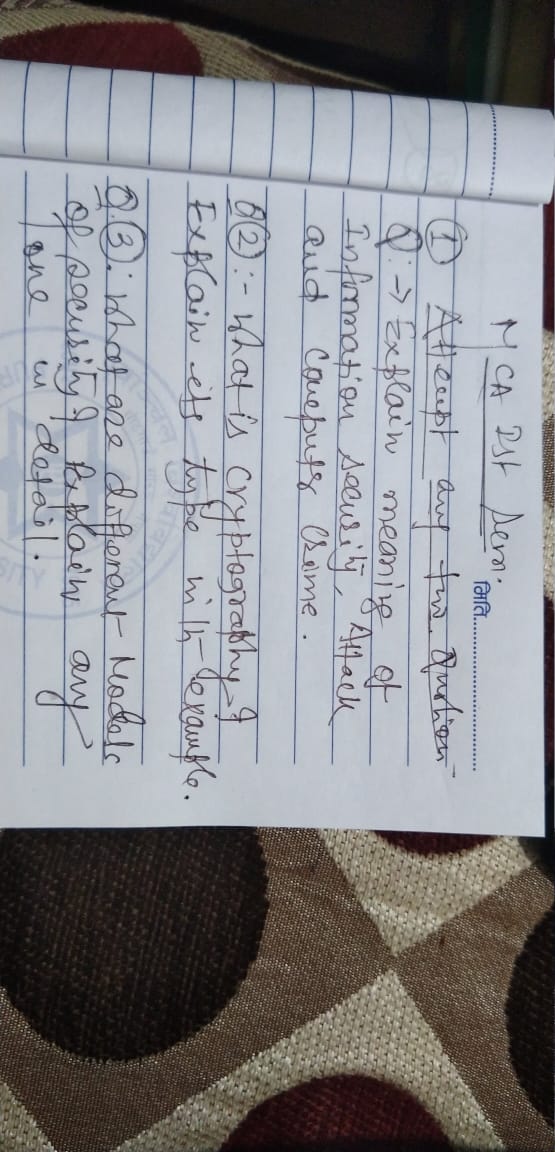 मिति..............................
MCA Ist Sem.
① Attempt any two Question
Q:→ Explain meaning of
Information security, Attack
and Computer Crime.
Q②:- What is Cryptography?
Explain its type with example.
Q.③: What are different Models
of security? Explain any
one in detail.